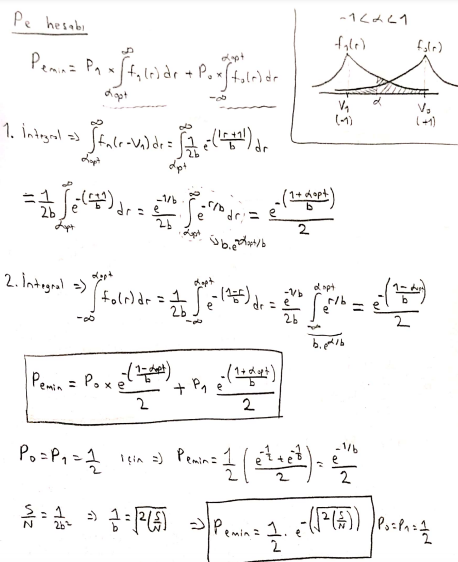 Pe hesabı
-1<α<1
f₁(r) f₀(r)
V₁ α V₀
(-1) (+1)
Pemin = P₁ × ∫_{αopt}^{∞} f₁(r) dr + P₀ × ∫_{-∞}^{αopt} f₀(r) dr
1. İntegral => ∫_{αopt}^{∞} fₙ(r-V₁) dr = ∫_{αopt}^{∞} 1/2b e^{-(|r+1|/b)} dr
= 1/2b ∫_{αopt}^{∞} e^{-(r+1/b)} dr = e^{-1/b}/2b ∫_{αopt}^{∞} e^{-r/b} dr = e^{-(1+αopt/b)}/2
b.e^{-αopt/b}
2. İntegral => ∫_{-∞}^{αopt} f₀(r) dr = 1/2b ∫_{-∞}^{αopt} e^{-(1-r/b)} dr = e^{-1/b}/2b ∫_{-∞}^{αopt} e^{r/b} = e^{-(1-αopt/b)}/2
b.e^{α/b}
Pemin = P₀ × e^{-(1-αopt/b)}/2 + P₁ e^{-(1+αopt/b)}/2
P₀=P₁=1/2 için => Pemin = 1/2 (e^{-1/b}+e^{-1/b}/2) = e^{-1/b}/2
S/N = 1/2b² => 1/b = √2(S/N) => Pemin = 1/2 . e^{-(√2(S/N))} P₀=P₁=1/2